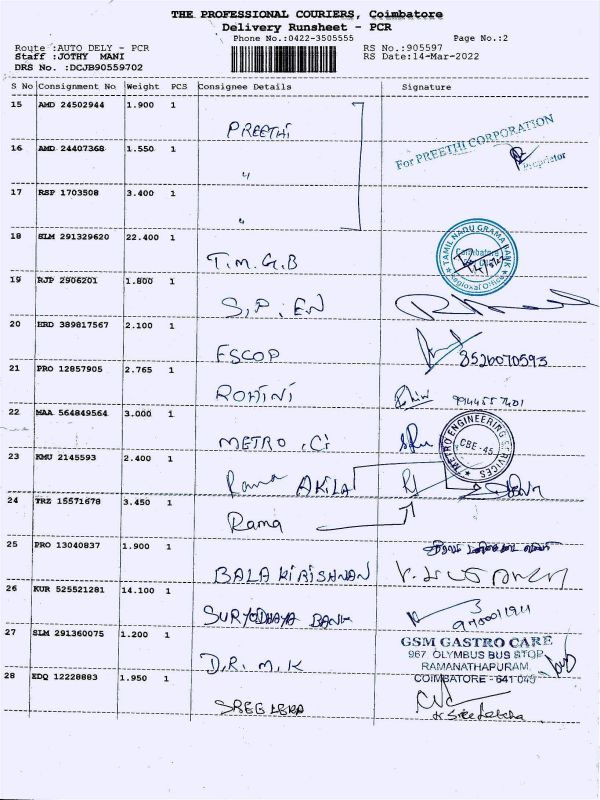 THE PROFESSIONAL COURIERS, Coimbatore
Delivery Runsheet - PCR
Phone No.:0422-3505555
Page No.:2
Route :AUTO DELY - PCR
RS No.:905597
Staff :JOTHY MANI
RS Date:14-Mar-2022
DRS No. :DCJB90559702
S No Consignment No Weight PCS Consignee Details Signature
15 AMD 24502944 1.900 1
PREETHI
For PREETHI CORPORATION
Proprietor
16 AMD 24407368 1.550 1
"
17 RSP 1703508 3.400 1
"
18 SLM 291329620 22.400 1
T.M.G.B
TAMIL NADU GRAMA BANK
Coimbatore
Regional Office
19 RJP 2906201 1.800 1
S.P.EN
20 HRD 389817567 2.100 1
ESCOP
8526070593
21 PRO 12857905 2.765 1
ROHINI
9944557401
22 MAA 564849564 3.000 1
METRO .Ci
METRO ENGINEERING SERVICES
CBE-45
23 KMU 2145593 2.400 1
Rama AKILA
24 TRZ 15571678 3.450 1
Rama
25 PRO 13040837 1.900 1
BALA KIRISHNAN
26 KUR 525521281 14.100 1
SURYODHAYA BANK
27 SLM 291360075 1.200 1
D.R.M.K
GSM GASTRO CARE
967 OLYMBUS BUS STOP
RAMANATHAPURAM
COIMBATORE - 641 045
28 EDQ 12228883 1.950 1
SREE LEKA